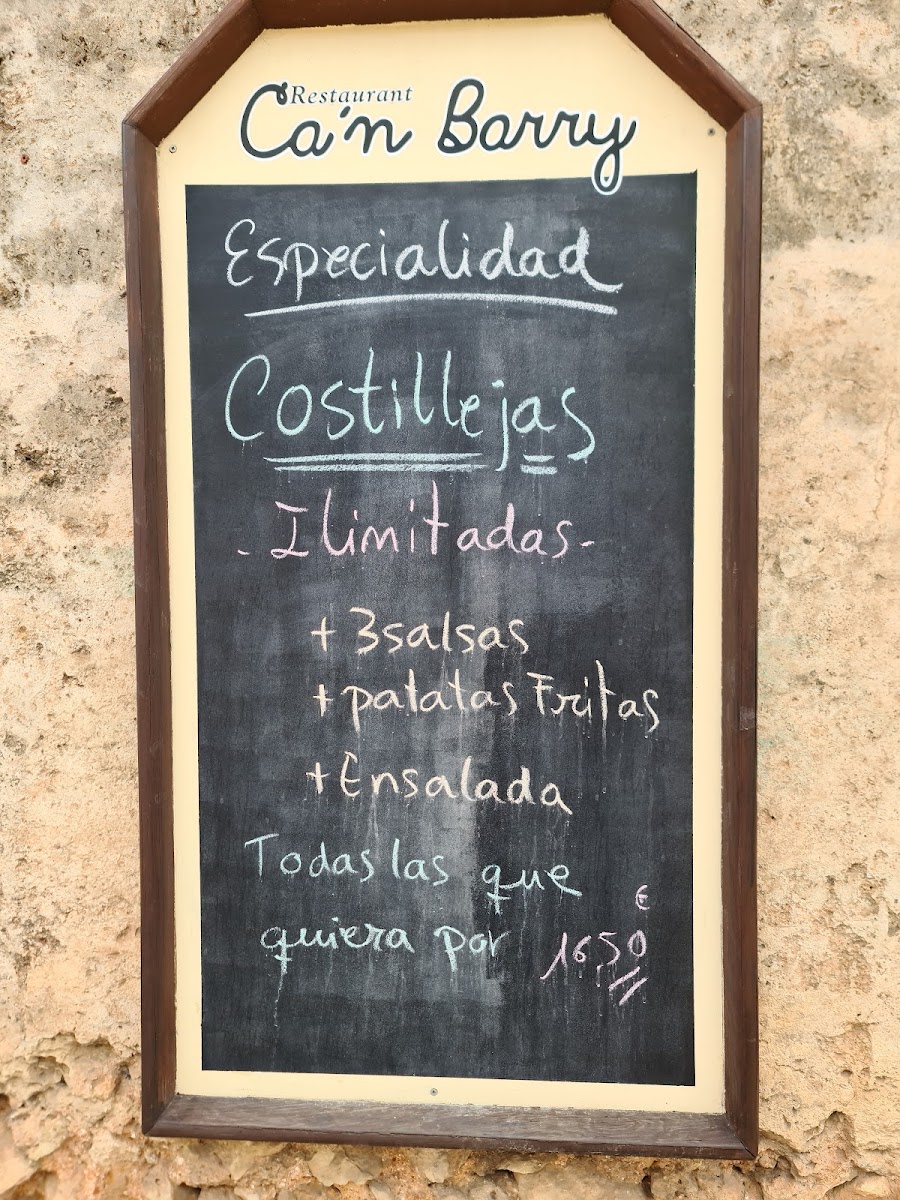 Restaurant
Ca'n Barry
Especialidad
Costillejas
- Ilimitadas -
+ 3 salsas
+ patatas Fritas
+ Ensalada
Todas las que
quiera por 16,50 €